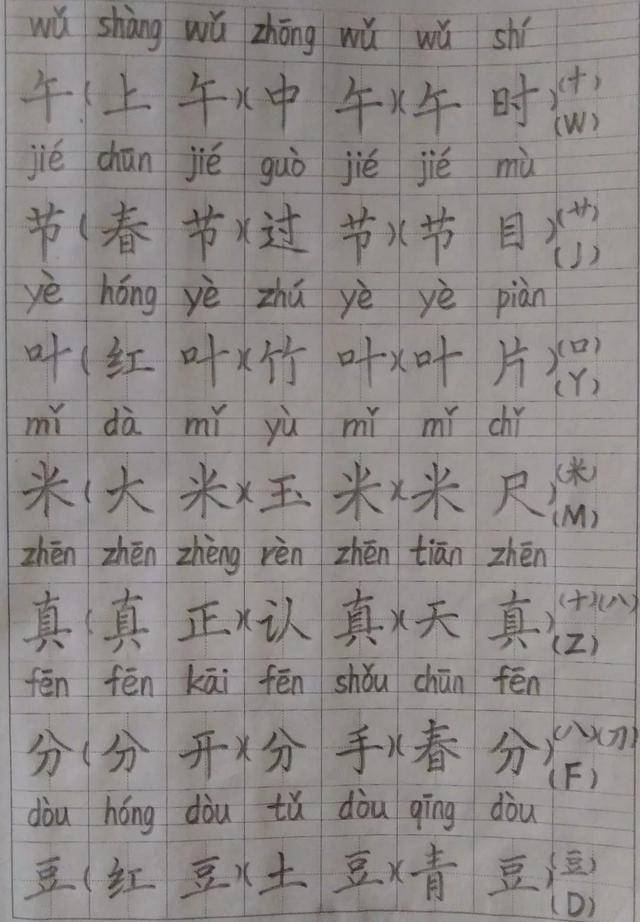 wǔ shàng wǔ zhōng wǔ wǔ shí
午(上午)(中午)(午时)(十)
(W)
jié chūn jié guò jié jié mù
节(春节)(过节)(节目)(艹)
(J)
yè hóng yè zhú yè yè piàn
叶(红叶)(竹叶)(叶片)(口)
(Y)
mǐ dà mǐ yù mǐ mǐ chǐ
米(大米)(玉米)(米尺)(米)
(M)
zhēn zhēn zhèng rèn zhēn tiān zhēn
真(真正)(认真)(天真)(十)(八)
(Z)
fēn fēn kāi fēn shǒu chūn fēn
分(分开)(分手)(春分)(八)(刀)
(F)
dòu hóng dòu tǔ dòu qīng dòu
豆(红豆)(土豆)(青豆)(豆)
(D)